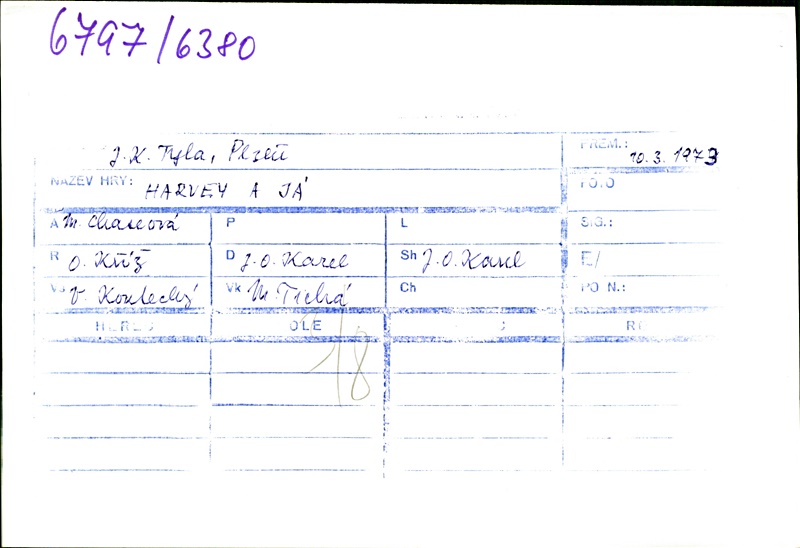 6797/6380
J. K. Tyla, Plzeň PREM.: 10. 3. 1973
NÁZEV HRY: HARVEY A JÁ FOTO
A M. Chaseová P L SIG.:
R O. Kříž D J. O. Karel Sh J. O. Karel E/
V. Koutecký Vk M. Tichá Ch PO N.:
HEREC OLE C RO
18